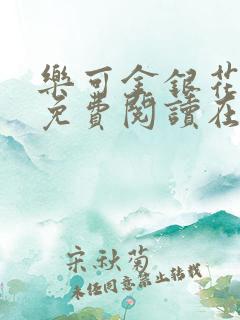 樂可金銀花
免費閱讀在
宋秋菊
未任同意禁止转载